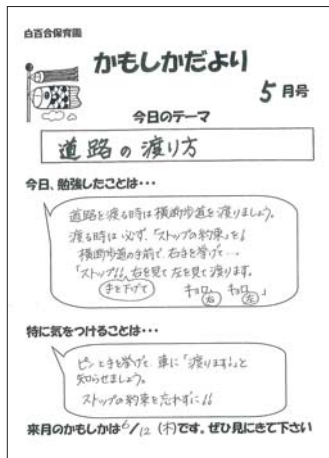 白百合保育園
かもしかだより
5月号
今日のテーマ
道路の渡り方
今日、勉強したことは・・・
道路を渡る時は横断歩道を渡りましょう。
渡る時は必ず、「ストップの約束」を!!
横断歩道の手前で、右手を挙げて…
「ストップ!!、右を見て左を見て渡ります。
手を下げて キョロ右 キョロ左」
特に気をつけることは・・・
ピンと手を挙げて、車に「渡ります!」と
知らせましょう。
ストップの約束を忘れずに!!
来月のかもしかは6/12(木)です。ぜひ見にきて下さい